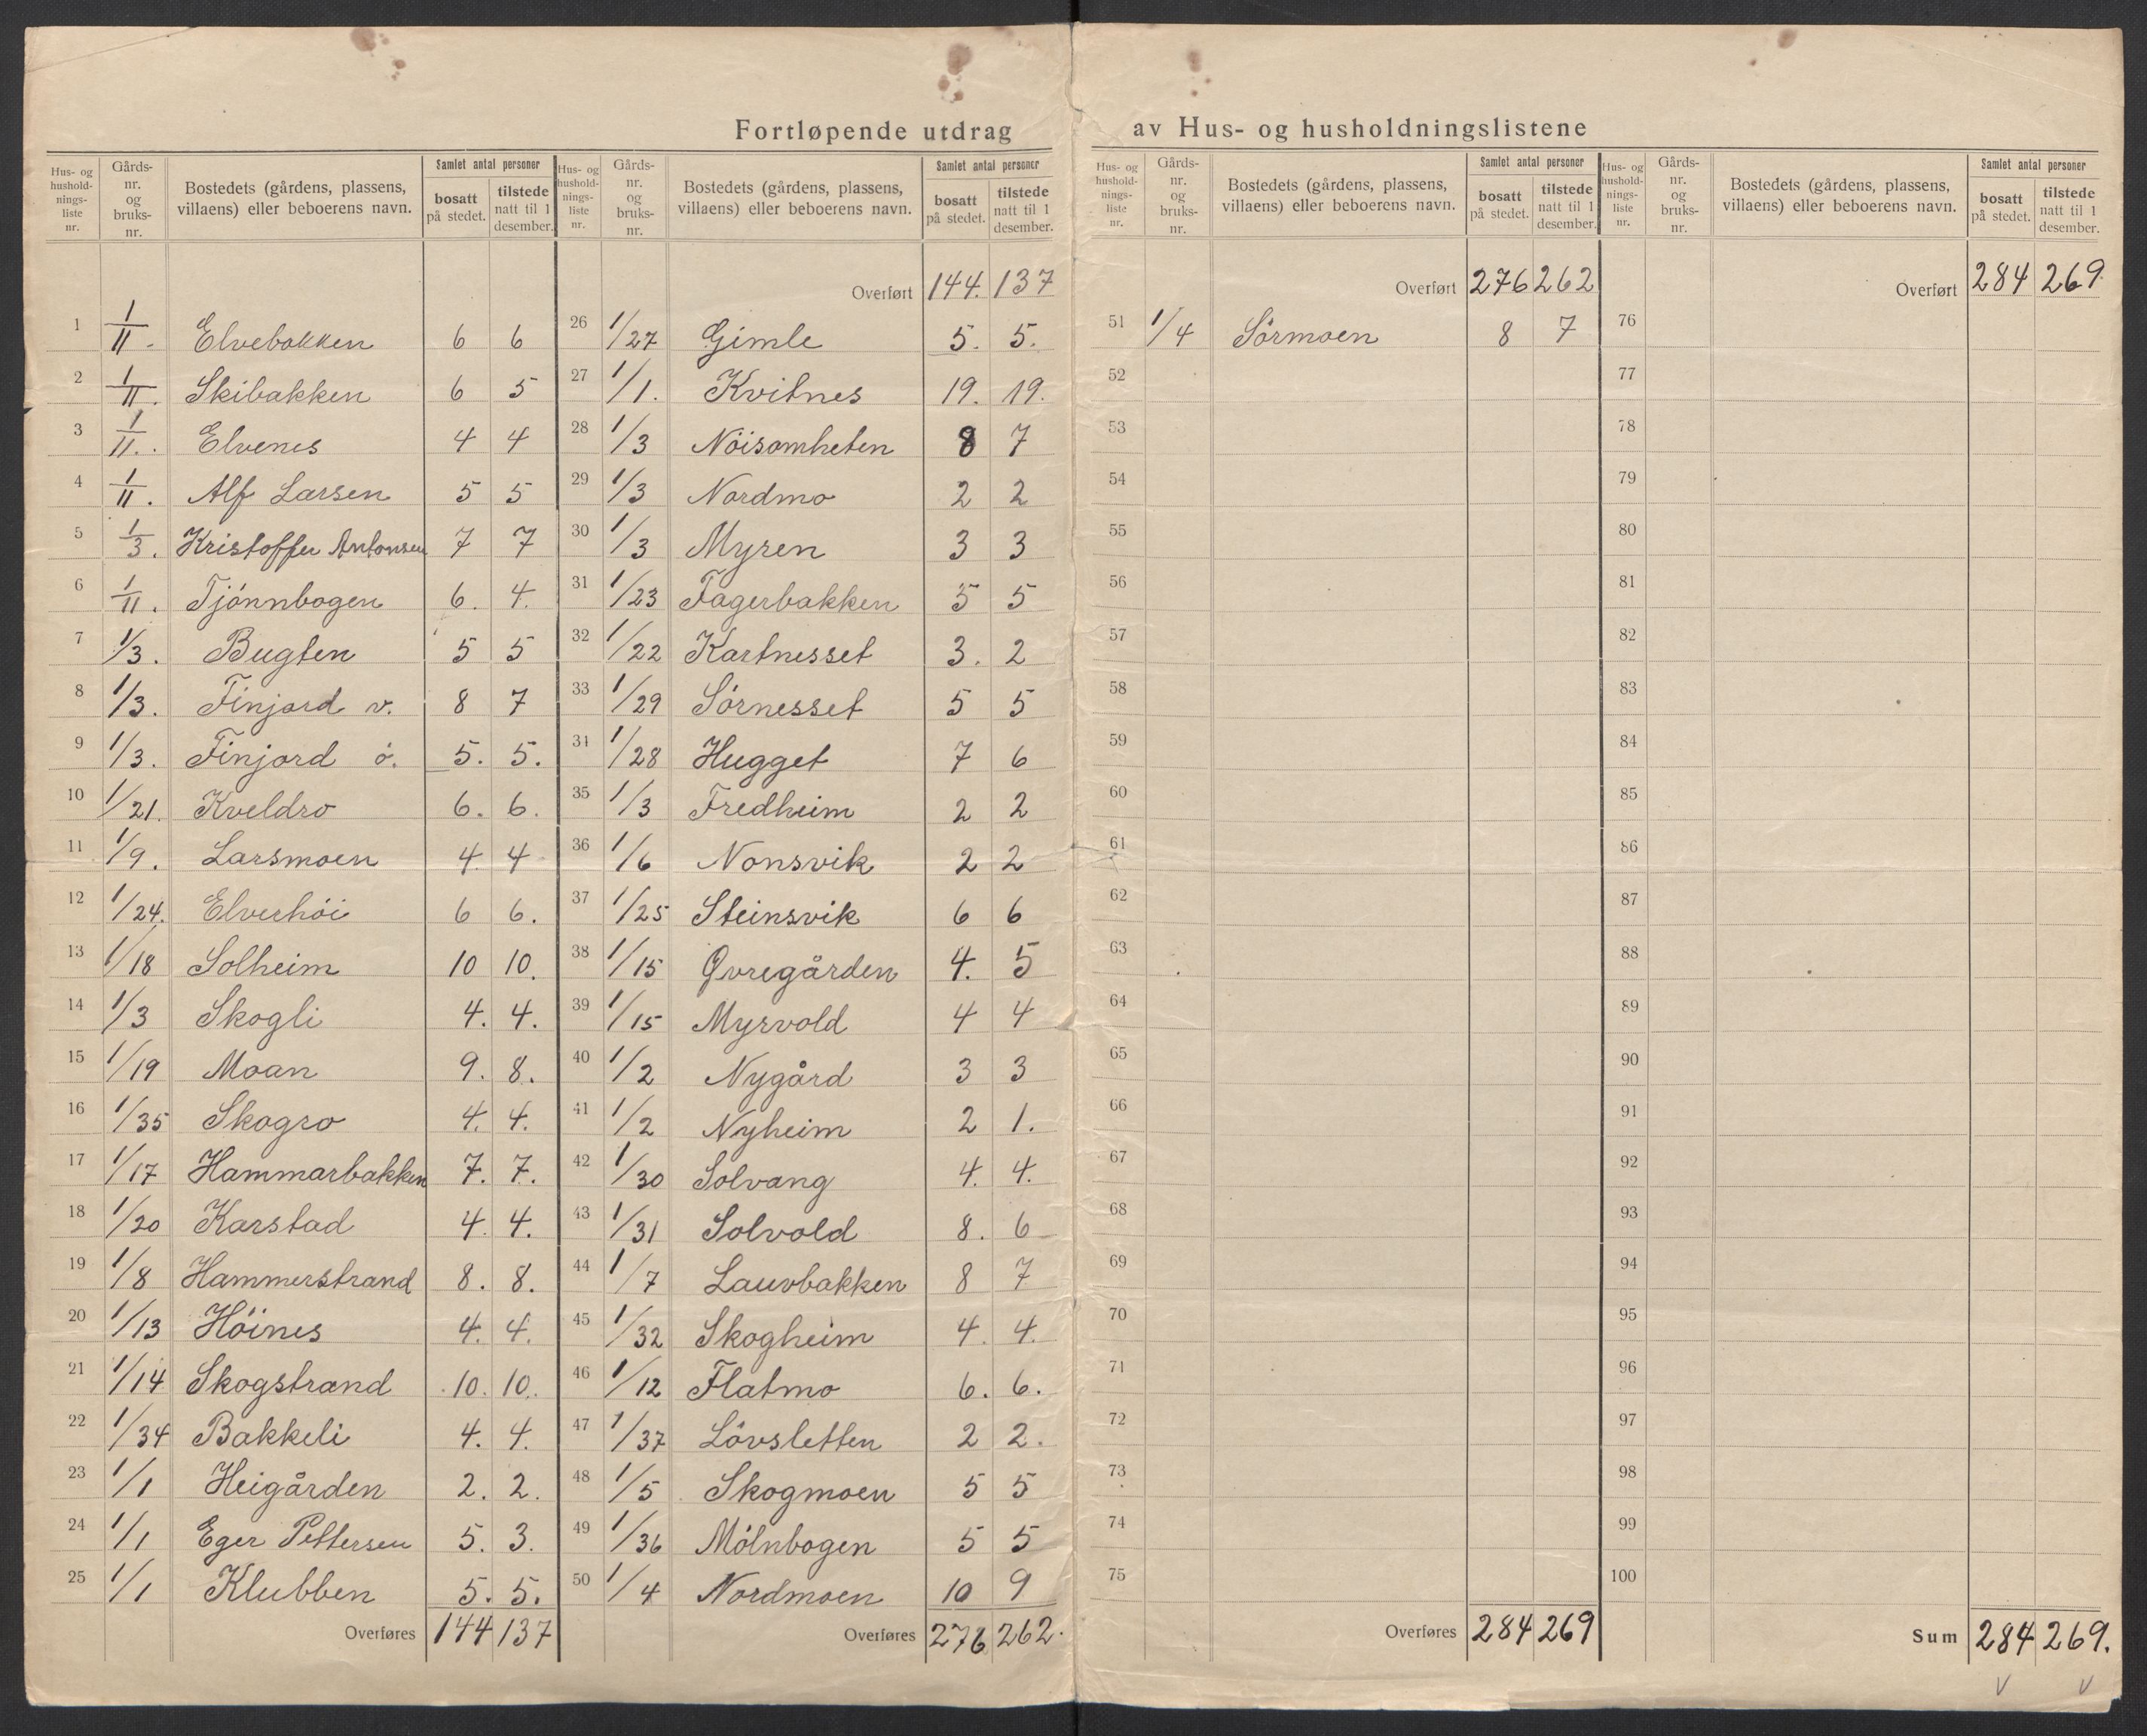 Fortløpende utdrag av Hus- og husholdningslistene
Hus- og hushold- nings- liste nr. | Gårds- nr. og bruks- nr. | Bostedets (gårdens, plassens, villaens) eller beboerens navn. | Samlet antal personer | bosatt på stedet. | tilstede natt til 1 desember.
1 1/11. Elvebakken 6 6
2 1/11. Skibakken 6 5
3 1/11. Elvenes 4 4
4 1/11. Alf Larsen 5 5
5 1/3. Kristoffer Antonsen 7 7
6 1/11. Tjönnbogen 6. 4.
7 1/3. Bugten 5 5
8 1/3. Finjord v. 8 7
9 1/3. Finjord ö. 5. 5.
10 1/21. Kveldro 6. 6.
11 1/9. Larsmoen 4. 4
12 1/24. Elverhöi 6 6.
13 1/18 Solheim 10 10.
14 1/3 Skogli 4. 4.
15 1/19 Moan 9. 8.
16 1/35 Skogro 4. 4.
17 1/17 Hammarbakken 7. 7.
18 1/20 Karstad 4. 4.
19 1/8 Hammerstrand 8. 8.
20 1/13 Höines 4. 4.
21 1/14 Skogstrand 10. 10.
22 1/34 Bakkeli 4. 4.
23 1/1 Heigården 2. 2.
24 1/1 Eger Pettersen 5. 3.
25 1/1 Klubben 5. 5.
Overføres 144 137
Hus- og hushold- nings- liste nr. | Gårds- nr. og bruks- nr. | Bostedets (gårdens, plassens, villaens) eller beboerens navn. | Samlet antal personer | bosatt på stedet. | tilstede natt til 1 desember.
Overført 144. 137
26 1/27 Gimle 5. 5.
27 1/1. Kvitnes 19. 19.
28 1/3 Nöisomheten 8 7
29 1/3 Nordmo 2 2
30 1/3 Myren 3 3
31 1/23 Fagerbakken 5 5
32 1/22 Kartnesset 3. 2
33 1/29 Sörnesset 5 5
34 1/28 Hugget 7 6
35 1/3 Fredheim 2 2
36 1/6 Nonsvik 2 2
37 1/25 Steinsvik 6 6
38 1/15 Øvregården 4. 5
39 1/15 Myrvold 4 4
40 1/2 Nygård 3 3
41 1/2 Nyheim 2 1.
42 1/30 Solvang 4. 4.
43 1/31 Solvold 8. 6
44 1/7 Lauvbakken 8 7
45 1/32 Skogheim 4. 4.
46 1/12 Flatmo 6. 6.
47 1/37 Lövsletten 2 2.
48 1/5 Skogmoen 5 5
49 1/36 Mölnbogen 5 5
50 1/4 Nordmoen 10 9
Overføres 276 262.
Hus- og hushold- nings- liste nr. | Gårds- nr. og bruks- nr. | Bostedets (gårdens, plassens, villaens) eller beboerens navn. | Samlet antal personer | bosatt på stedet. | tilstede natt til 1 desember.
Overført 276 262
51 1/4 Sörmoen 8 7
52
53
54
55
56
57
58
59
60
61
62
63
64
65
66
67
68
69
70
71
72
73
74
75
Overføres 284 269
Hus- og hushold- nings- liste nr. | Gårds- nr. og bruks- nr. | Bostedets (gårdens, plassens, villaens) eller beboerens navn. | Samlet antal personer | bosatt på stedet. | tilstede natt til 1 desember.
Overført 284 269.
76
77
78
79
80
81
82
83
84
85
86
87
88
89
90
91
92
93
94
95
96
97
98
99
100
Sum 284 269.
v v